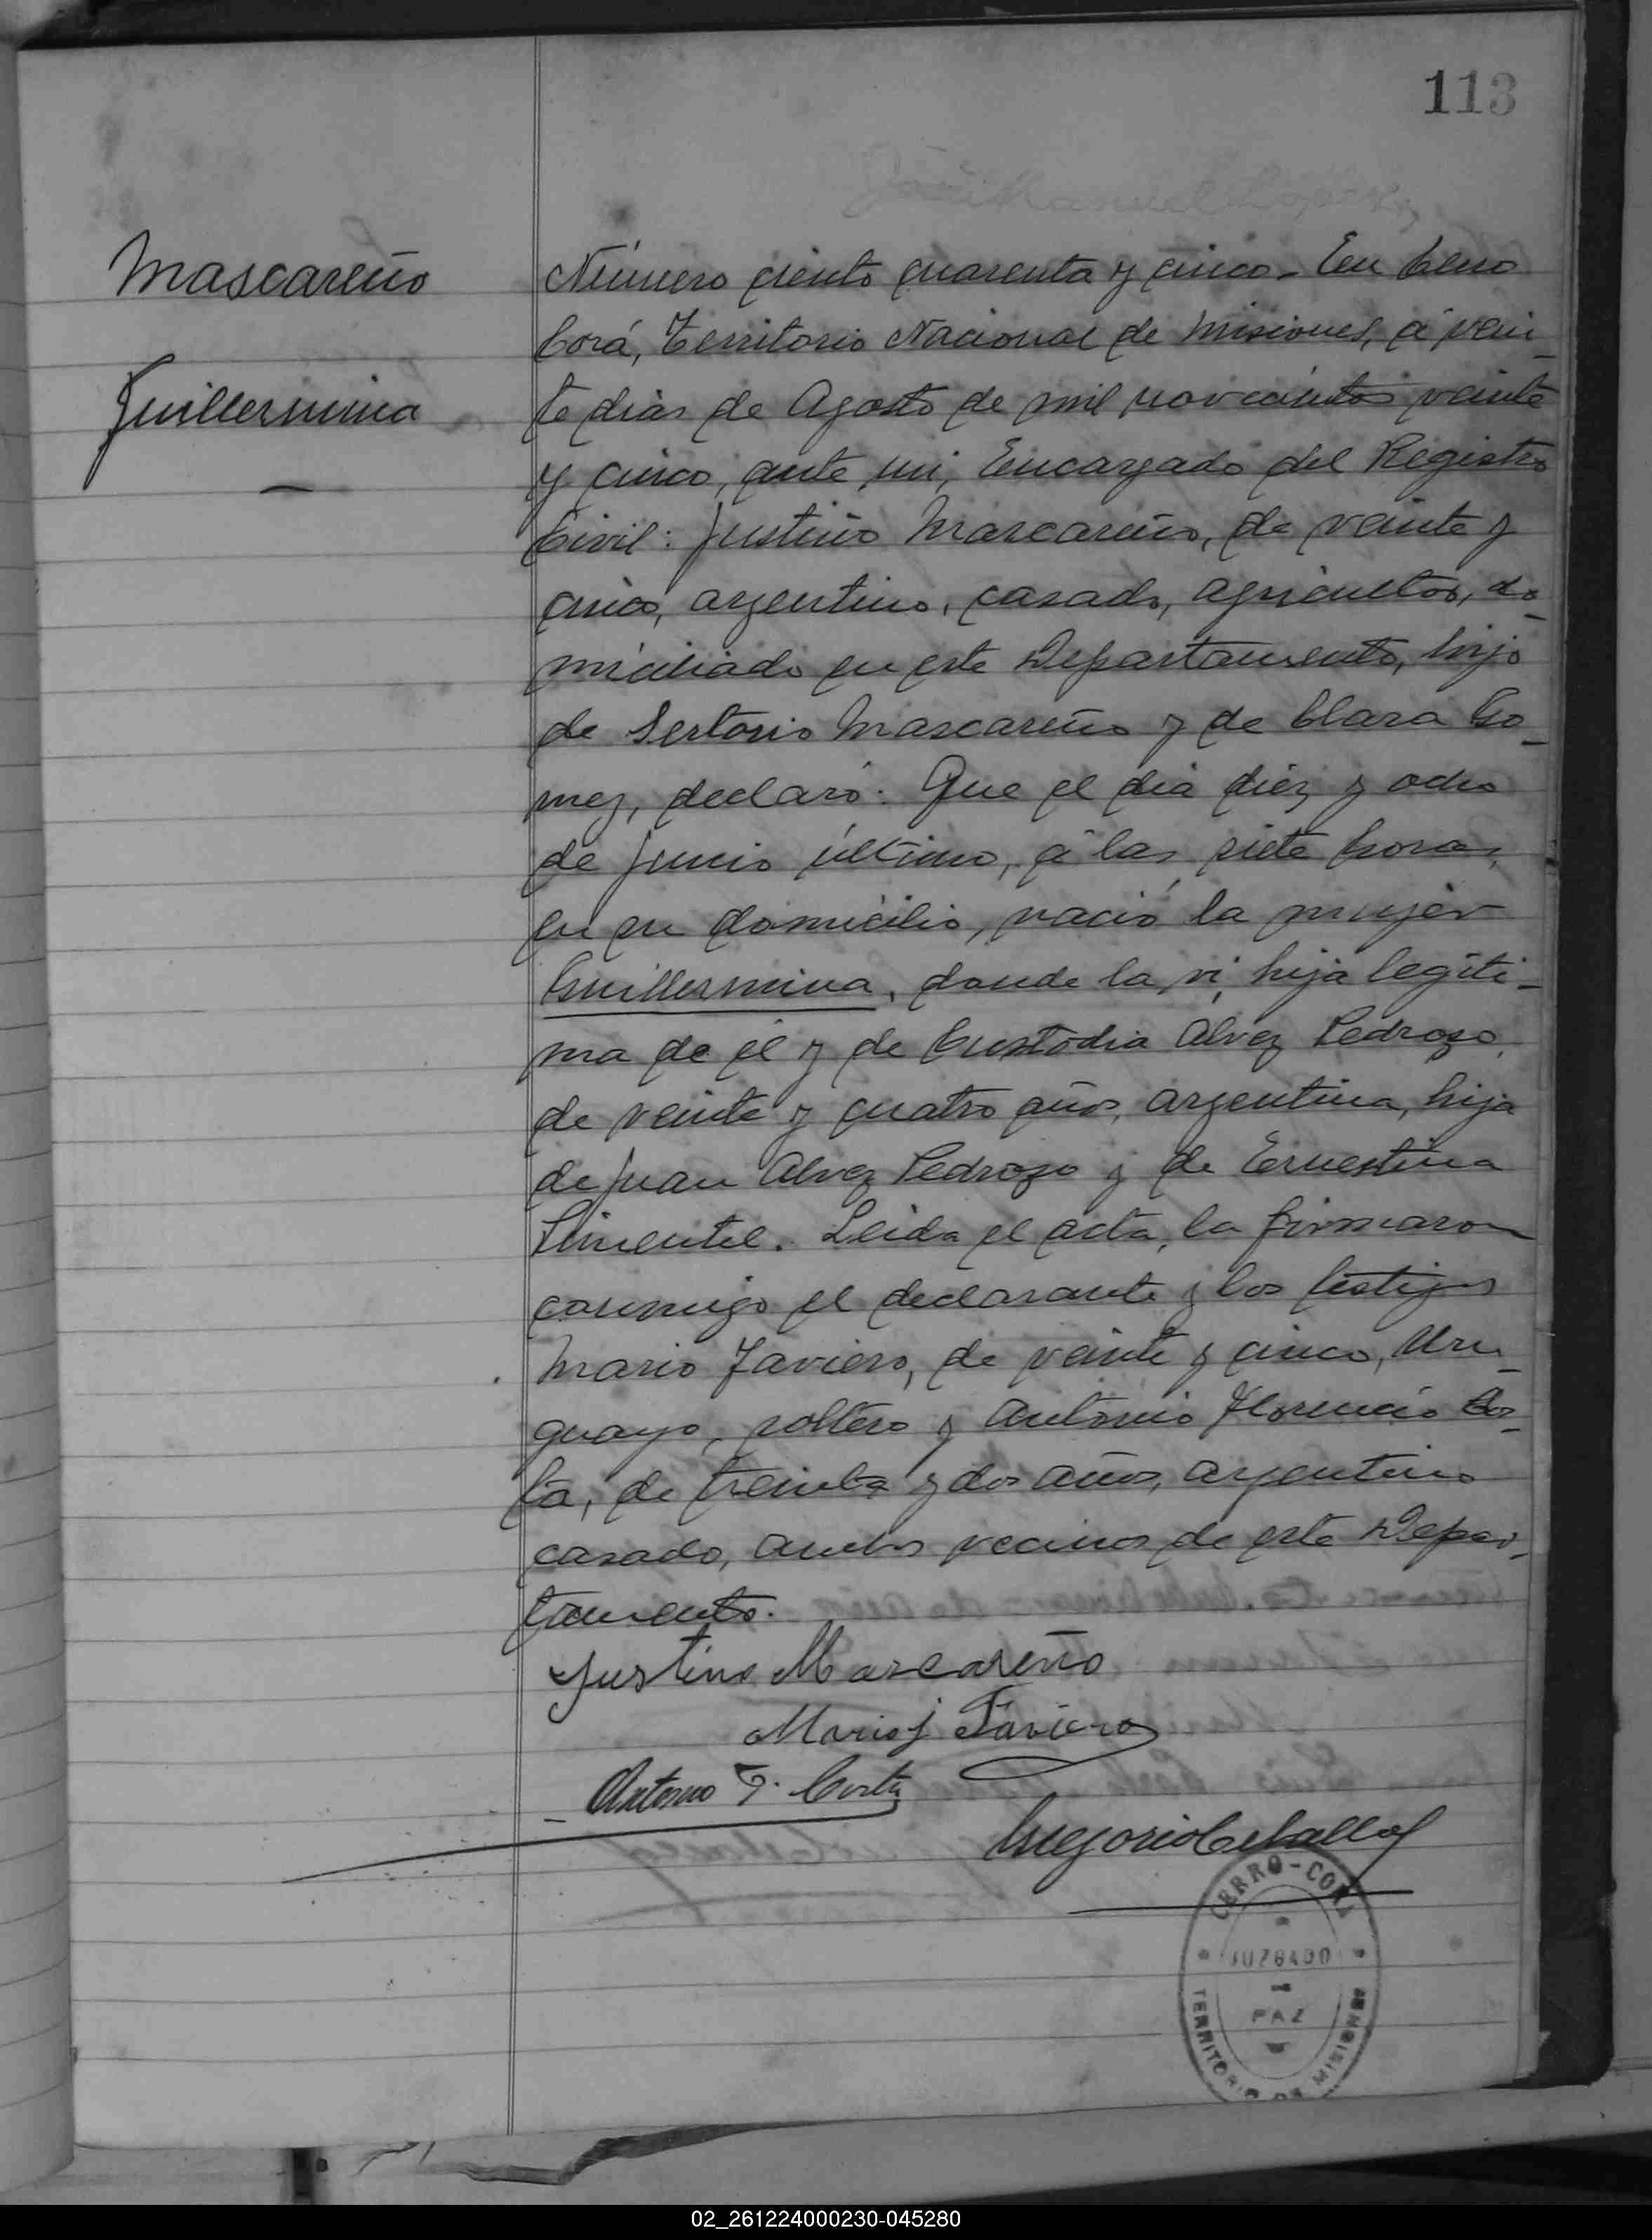 113
Mascareño
Guillermina
Número ciento cuarenta y cinco. En Cerro
Corá, Territorio Nacional de Misiones, á vein-
te dias de Agosto de mil novecientos veinte
y cinco, ante mi, Encargado del Registro
Civil: Justino Mascareño, de veinte y
cinco, argentino, casado, agricultor, do-
miciliado en este Departamento, hijo
de Sertorio Mascareño y de Clara Go-
mez, declaró: Que el dia diez y ocho
de Junio último, á las siete horas,
en su domicilio, nació la mujer
Guillermina, donde la vi, hija legiti-
ma de él y de Custodia Alvez Pedrozo,
de veinte y cuatro años, argentina, hija
de Juan Alvez Pedrozo y de Ernestina
Pimentel. Leida el acta, la firmaron
conmigo el declarante y los testigos
Mario Faviero, de veinte y cinco, Uru-
guayo, soltero y Antonio Florencio Cos-
ta, de treinta y dos años, argentino
casado, ambos vecinos de este Depar-
tamento.
Justino Mascareño
Mario J Faviero
Antonio F. Costa
Gregorio Ceballos
CERRO-CORÁ
JUZGADO
PAZ
TERRITORIO DE MISIONES
02_261224000230-045280